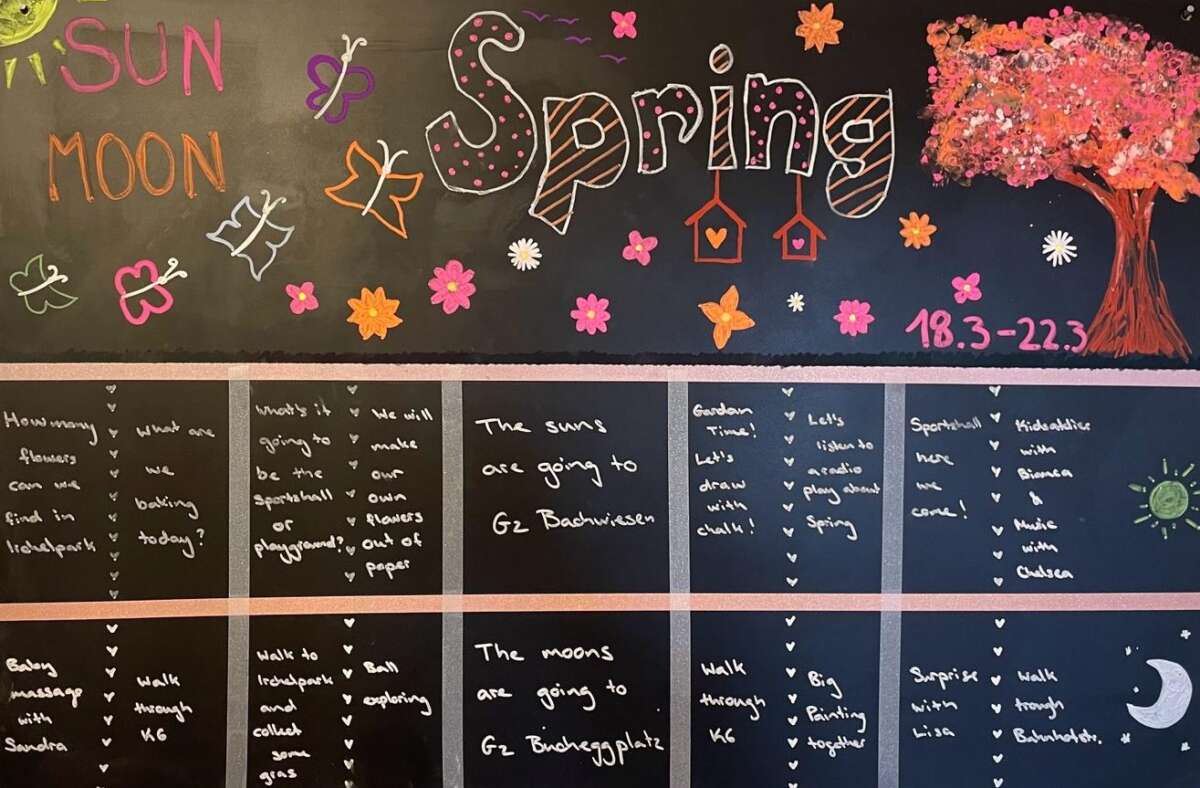 SUN
MOON
Spring
18.3-22.3
How many
flowers
can we
find in
Irchelpark
What are
we
baking
today?
What's it
going to
be the
Sportshall
or
playground?
We will
make
our
own
flowers
out of
paper
The suns
are going to
GZ Bachwiesen
Gardan
Time!
Let's
draw
with
chalk!
Let's
listen to
a radio
play about
Spring
Sportshall
here
we
come!
Kidsatelier
with
Bianca
&
Music
with
Chelsea
Baby
massage
with
Sandra
Walk
through
K6
Walk to
Irchelpark
and
collect
some
gras
Ball
exploring
The moons
are going to
GZ Bucheggplatz
Walk
through
K6
Big
Painting
together
Surprise
with
Lisa
Walk
trough
Bahnhofstr.